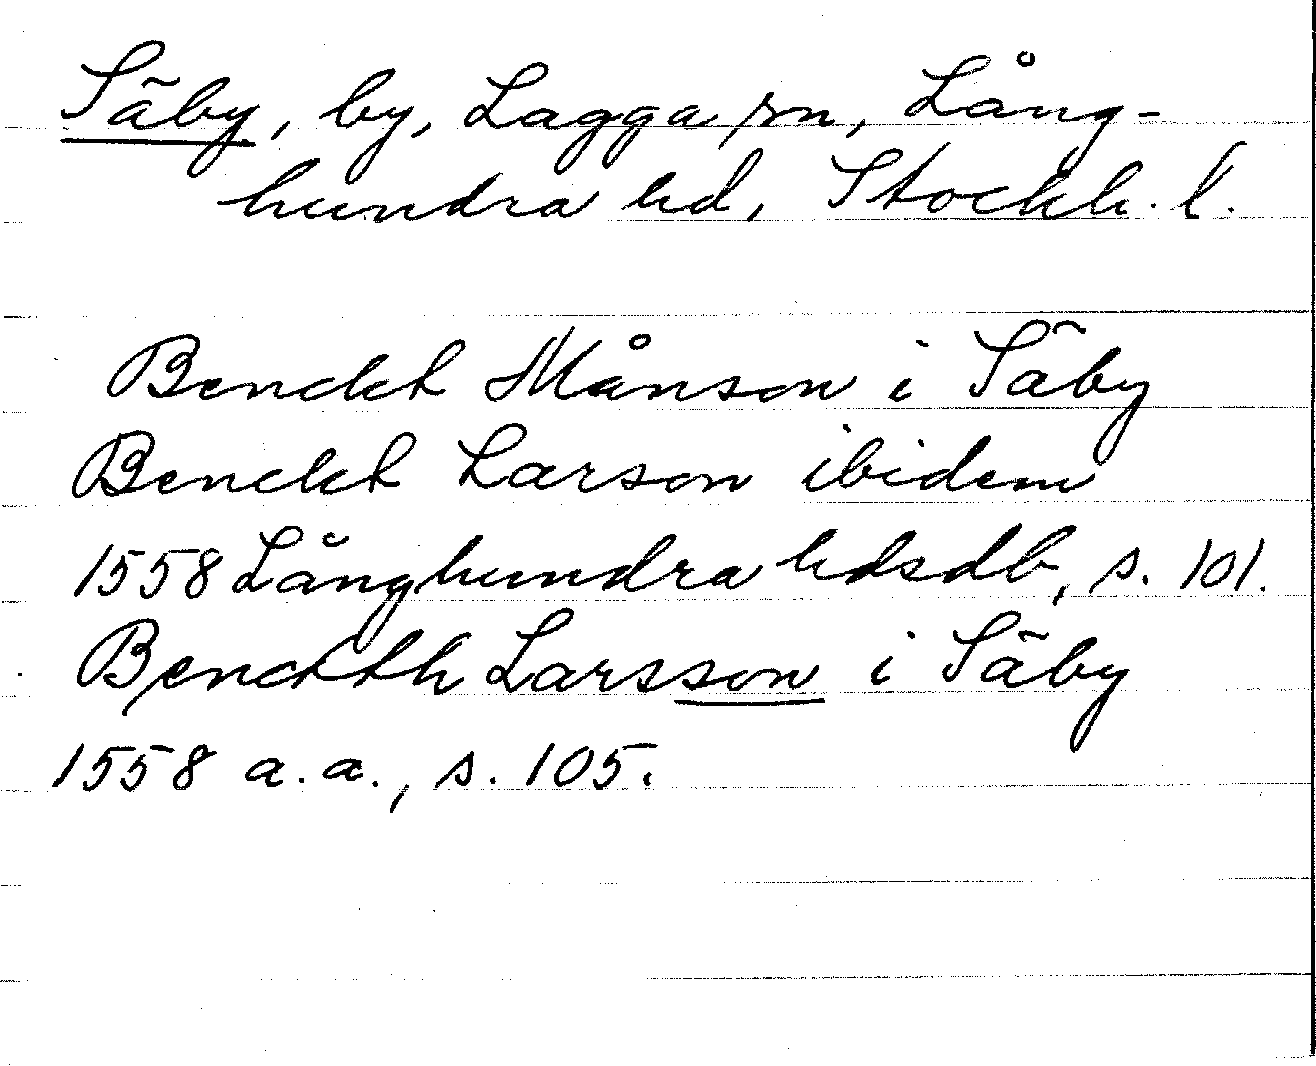 Säby, by, Lagga sn, Lång-
hundra hd, Stockh. l.
Benckt Månson i Säby
Benckt Larson ibidem
1558 Långhundra hdsdb, s. 101.
Benckth Larsson i Säby
1558 a.a., s. 105.